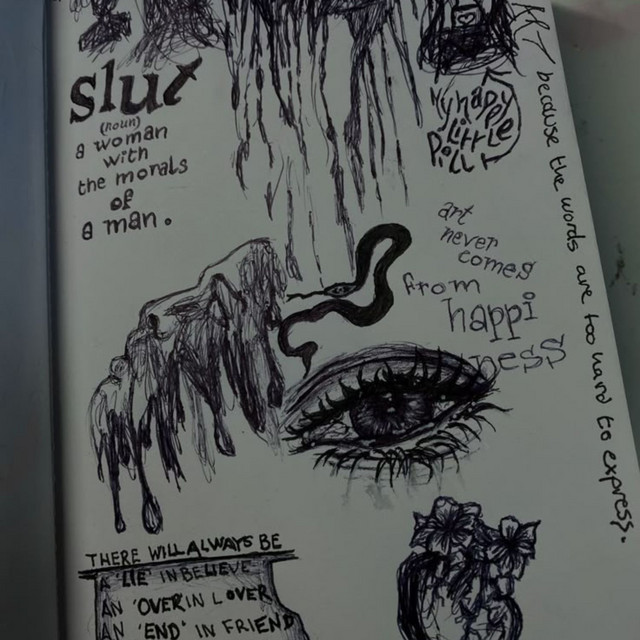 slut
(noun)
a woman
with
the morals
of
a man.
My happy
little
Pill
ART
because the words are too hard to express.
art
never
comes
from
happi
ness
THERE WILL ALWAYS BE
A 'LIE' IN BELIEVE
AN 'OVER IN LOVER
AN 'END' IN FRIEND